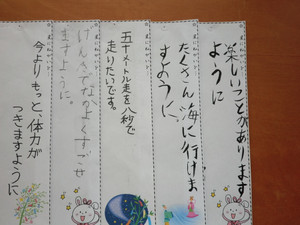 楽しいことがあります
ように
たくさん海に行けま
すように、
五十メートル走を八秒で
走りたいです。
けんきでなかよくすごせ
ますように。
今よりもっと、体力が
つきますように